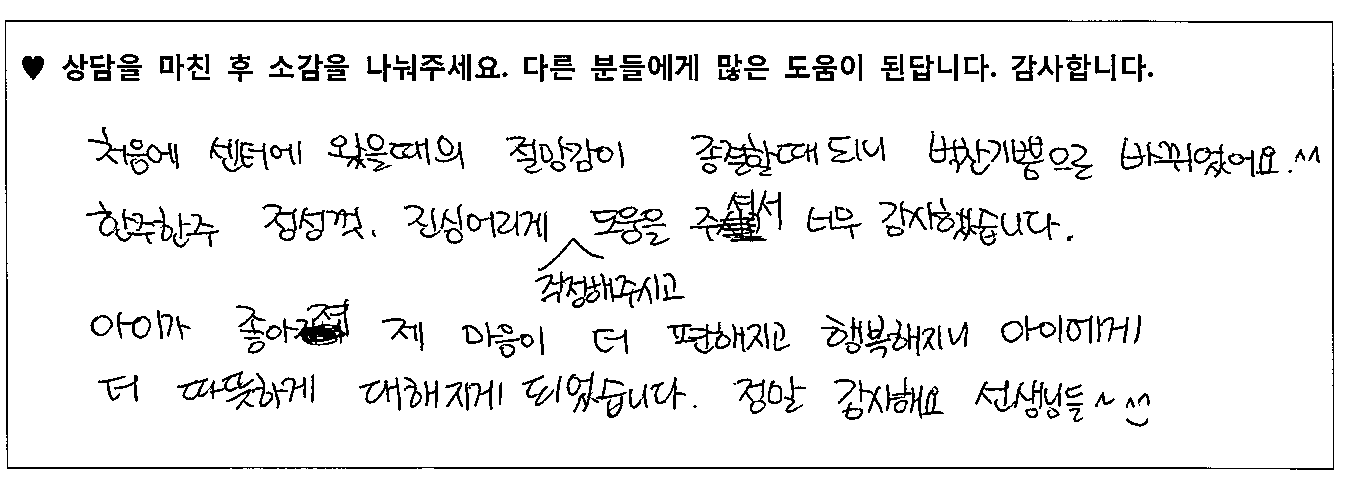 ♥ 상담을 마친 후 소감을 나눠주세요. 다른 분들에게 많은 도움이 된답니다. 감사합니다.
처음에 센터에 왔을때의 절망감이 종결할때 되니 벅찬기쁨으로 바뀌었어요.^^
한주한주 정성껏, 진심어리게 도움을 주셔서 너무 감사했습니다.
걱정해주시고
아이가 좋아져 제 마음이 더 편해지고 행복해지니 아이에게
더 따뜻하게 대해지게 되었습니다. 정말 감사해요 선생님들~ ^^